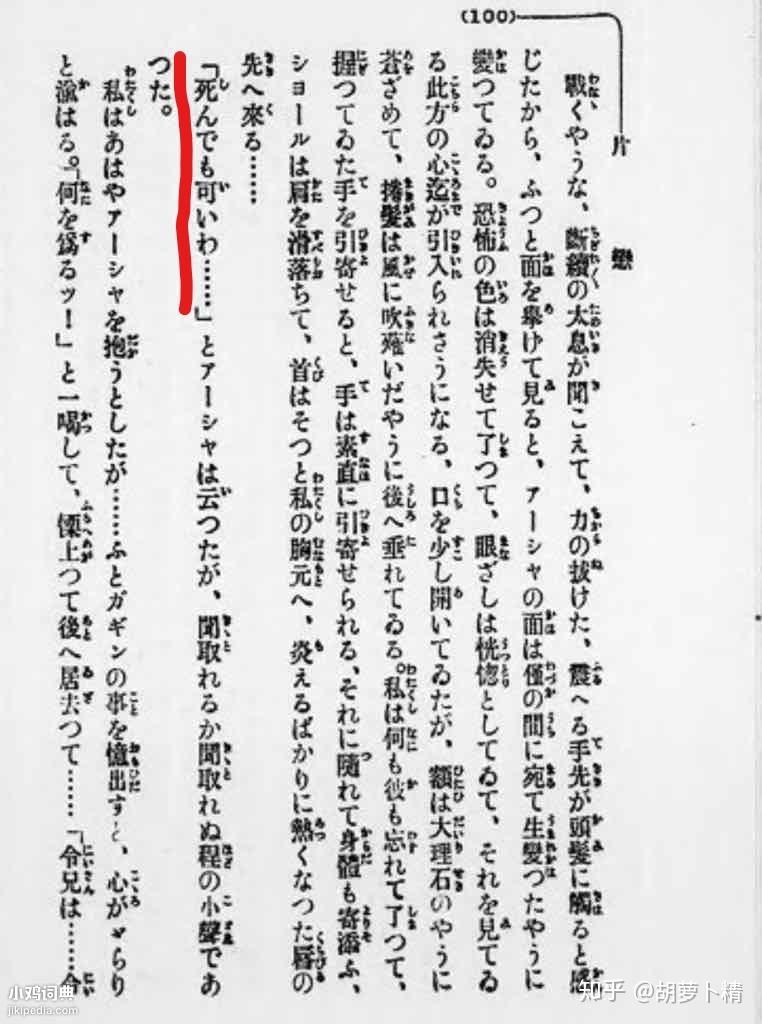 (100)
片戀
戰くやうな、斷續の太息が聞こえて、力の拔けた、震へる手先が頭髮に觸ると感
じたから、ふつと面を擧げて見ると、アーシャの面は僅の間に宛で生變つたやうに
變つてゐる。恐怖の色は消失せて了つて、眼ざしは恍惚としてゐて、それを見てゐ
る此方の心迄が引入られさうになる、口を少し開いてゐたが、額は大理石のやうに
蒼ざめて、捲髮は風に吹薙いだやうに後へ垂れてゐる。私は何も彼も忘れて了つて、
握つてゐた手を引寄せると、手は素直に引寄せられる、それに隨れて身體も寄添ふ、
ショールは肩を滑落ちて、首はそつと私の胸元へ、炎えるばかりに熱くなつた唇の
先へ來る……
「死んでも可いわ……」とアーシャは云つたが、聞取れるか聞取れぬ程の小聲であ
つた。
私はあはやアーシャを抱うとしたが……ふとガギンの事を憶出すと、心ががらり
と渝はる。「何を爲るッ！」と一喝して、慄上つて後へ居去つて……「令兄は……令
小鸡词典
jikipedia.com
知乎 @胡萝卜精